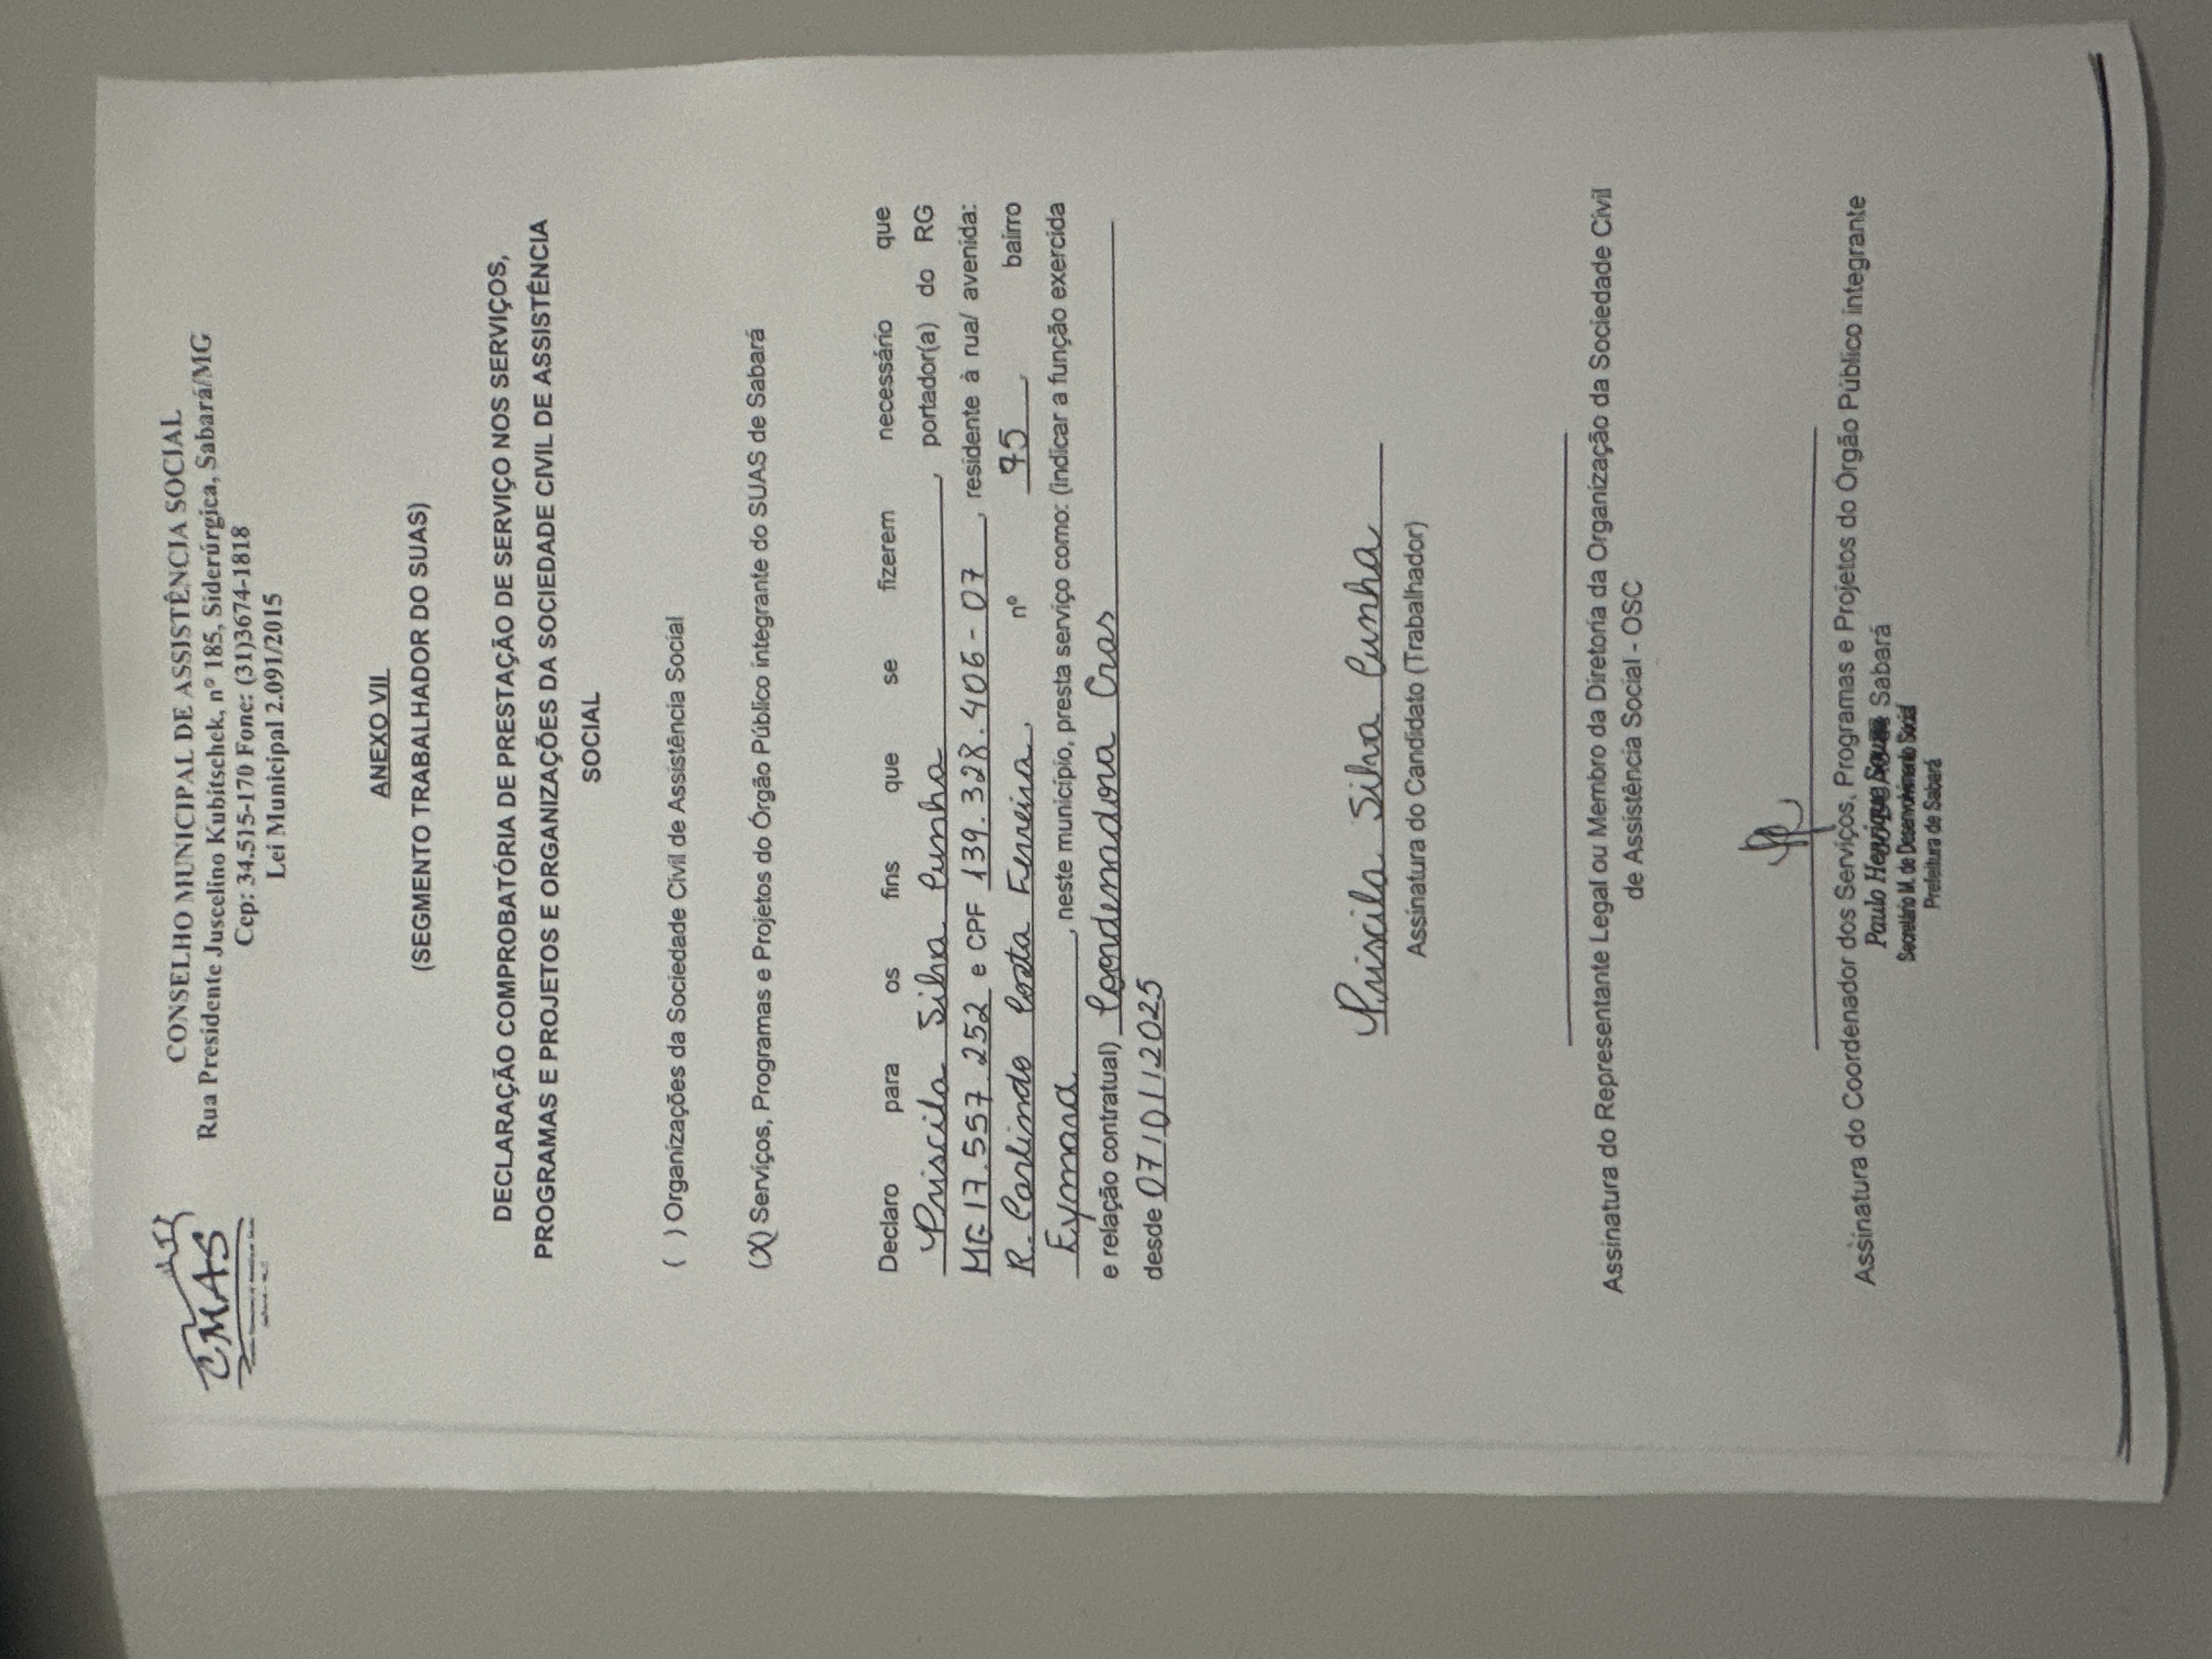 CMAS
CONSELHO MUNICIPAL DE ASSISTÊNCIA SOCIAL
Rua Presidente Juscelino Kubitschek, nº 185, Siderúrgica, Sabará/MG
Cep: 34.515-170 Fone: (31)3674-1818
Lei Municipal 2.091/2015
ANEXO VII
(SEGMENTO TRABALHADOR DO SUAS)
DECLARAÇÃO COMPROBATÓRIA DE PRESTAÇÃO DE SERVIÇO NOS SERVIÇOS,
PROGRAMAS E PROJETOS E ORGANIZAÇÕES DA SOCIEDADE CIVIL DE ASSISTÊNCIA
SOCIAL
( ) Organizações da Sociedade Civil de Assistência Social
(X) Serviços, Programas e Projetos do Órgão Público integrante do SUAS de Sabará
Declaro para os fins que se fizerem necessário que
Priscila Silva Cunha, portador(a) do RG
MG 17.557.252 e CPF 139.328.406-07, residente à rua/ avenida:
R. Carlindo Costa Ferreira, nº 75, bairro
Eymard, neste município, presta serviço como: (indicar a função exercida
e relação contratual) Coordenadora Cras
desde 07/01/2025
Priscila Silva Cunha
Assinatura do Candidato (Trabalhador)
Assinatura do Representante Legal ou Membro da Diretoria da Organização da Sociedade Civil
de Assistência Social - OSC
Assinatura do Coordenador dos Serviços, Programas e Projetos do Órgão Público integrante
Sabará
Paulo Henrique Souza
Secretário M. de Desenvolvimento Social
Prefeitura de Sabará